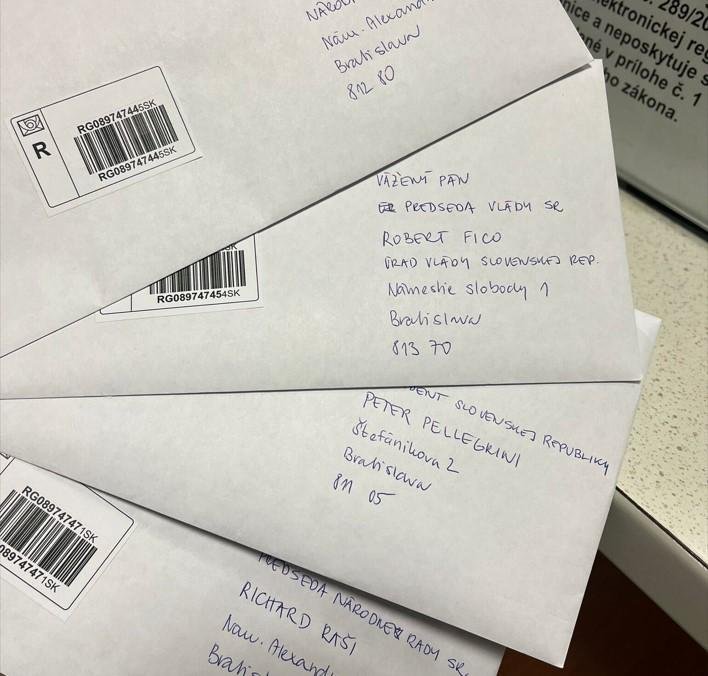 Nám. Alexand
Bratislava
812 80
R
RG089747445SK
RG089747445SK
289/20
ektronickej reg
nice a neposkytuje s
né v prílohe č. 1
ho zákona.
VÁŽENÝ PÁN
PREDSEDA VLÁDY SR
ROBERT FICO
ÚRAD VLÁDY SLOVENSKEJ REP.
Námestie slobody 1
Bratislava
813 70
RG089747454SK
DENT SLOVENSKEJ REPUBLIKY
PETER PELLEGRINI
Štefánikova 2
Bratislava
811 05
RG089747471SK
G089747471SK
PREDSEDA NÁRODNEJ RADY SR
RICHARD RAŠI
Nám. Alexand
Bratis